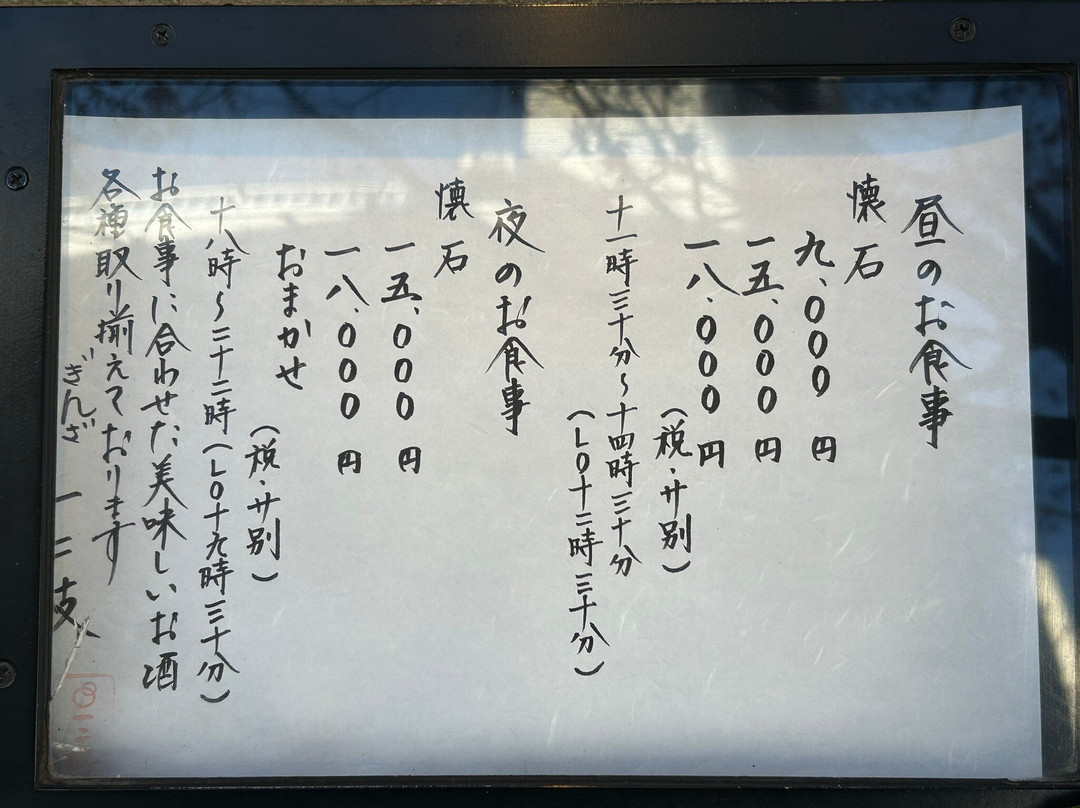 昼のお食事
懐石
九、000 円
一五、000 円
一八、000 円
(税・サ別)
十一時三十分〜十四時三十分
(LO十二時三十分)
夜のお食事
懐石
一五、000 円
一八、000 円
おまかせ
(税・サ別)
十八時〜二十二時(LO十九時三十分)
お食事に合わせた美味しいお酒
各種取り揃えております
ぎんざ 一二支